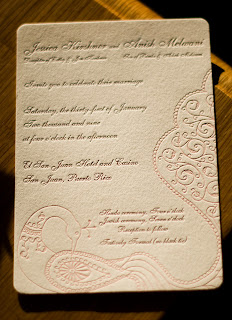 Jessica Kirshner and Anish Melwani
invite you to celebrate their marriage
Saturday, the thirty-first of January
Two thousand and nine
at four o'clock in the afternoon
El San Juan Hotel and Casino
San Juan, Puerto Rico
Hindu ceremony, four o'clock
Jewish ceremony, o'clock
Reception to follow
Festively Formal (no black tie)